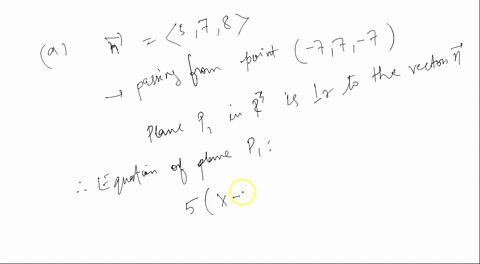 (a) n⃗ = <5,7,8>
→ passing from point (-7,7,-7)
Plane P₁ in ℝ³ is ⊥r to the vector n⃗
∴ Equation of plane P₁:
5(x-